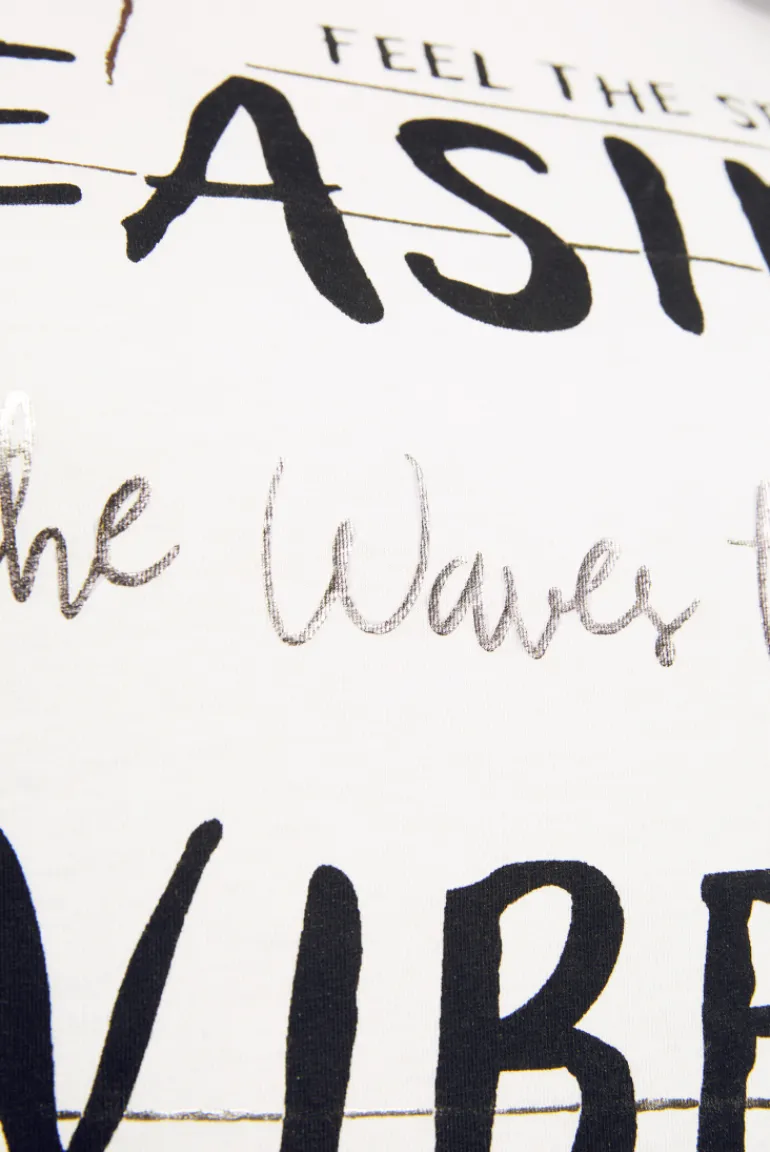 FEEL THE
EASI
he Waves
VIBE